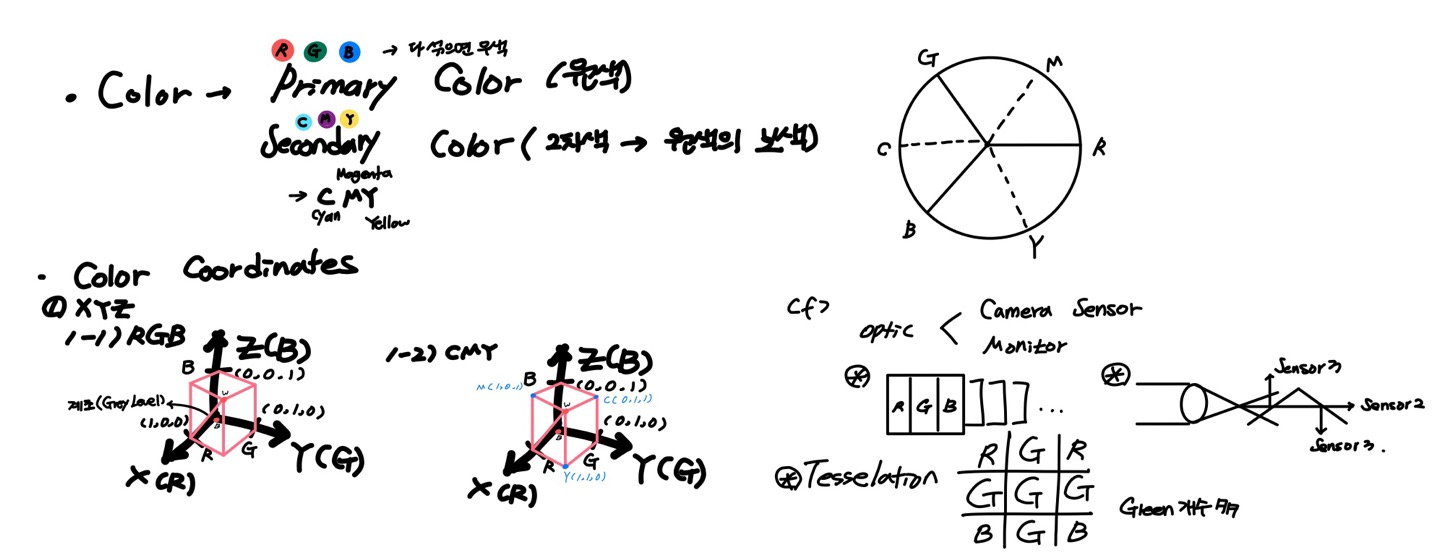 R G B → 다 섞으면 무색
• Color → Primary Color (원색)
C M Y
Secondary Color ( 2차색 → 원색의 보색)
Magenta
→ C MY
Cyan Yellow
G
M
C
R
B
Y
• Color Coordinates
① XYZ
1-1) RGB
Z(B)
B
(0,0,1)
W
계조(Grey Level)
(0,1,0)
(1,0,0)
B
R
G
Y(G)
X(R)
1-2) CMY
Z(B)
B
(0,0,1)
M(1,0,1)
C(0,1,1)
W
(0,1,0)
B
R
G
Y(1,1,0)
Y(G)
X(R)
cf>
optic < Camera Sensor
Monitor
⊛
R G B ...
⊛
Sensor3
Sensor2
Sensor3.
⊛ Tesselation
R G R
G G G
B G B
Gleen 개수 多